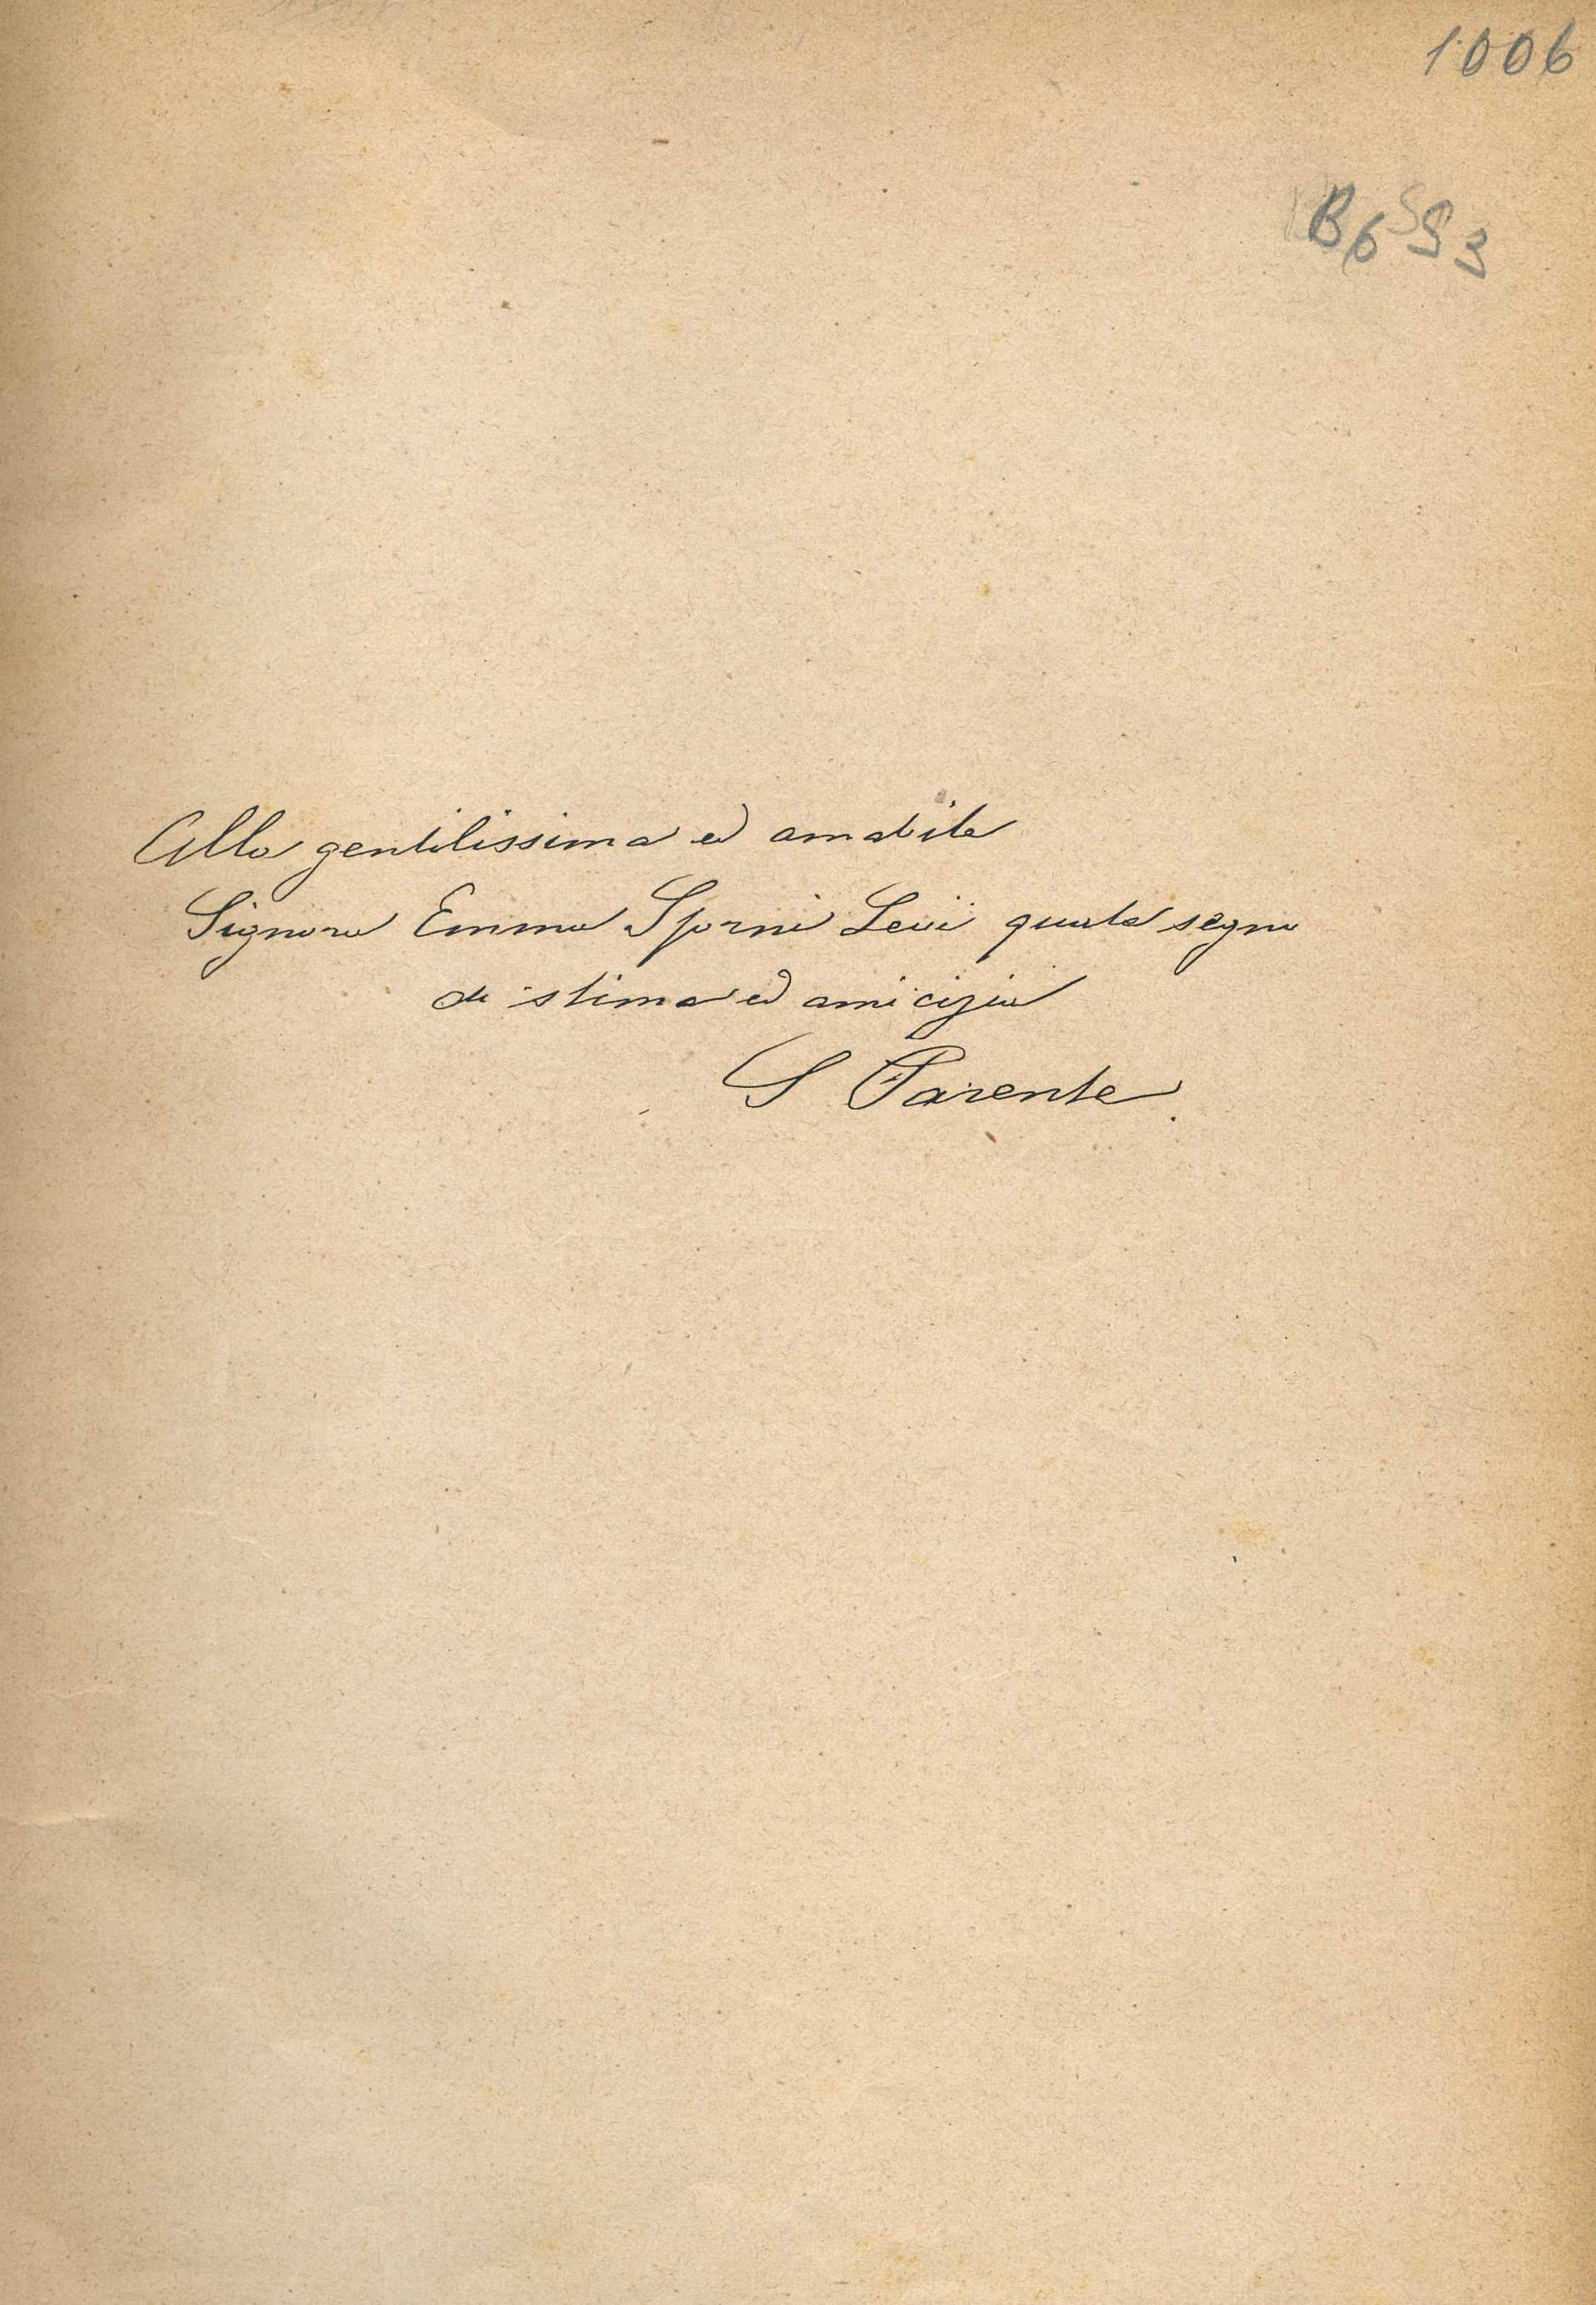 1006
B6 S3
Alla gentilissima ed amabile
Signora Emma Sforni Levi quale segno
di stima ed amicizia
S Parente